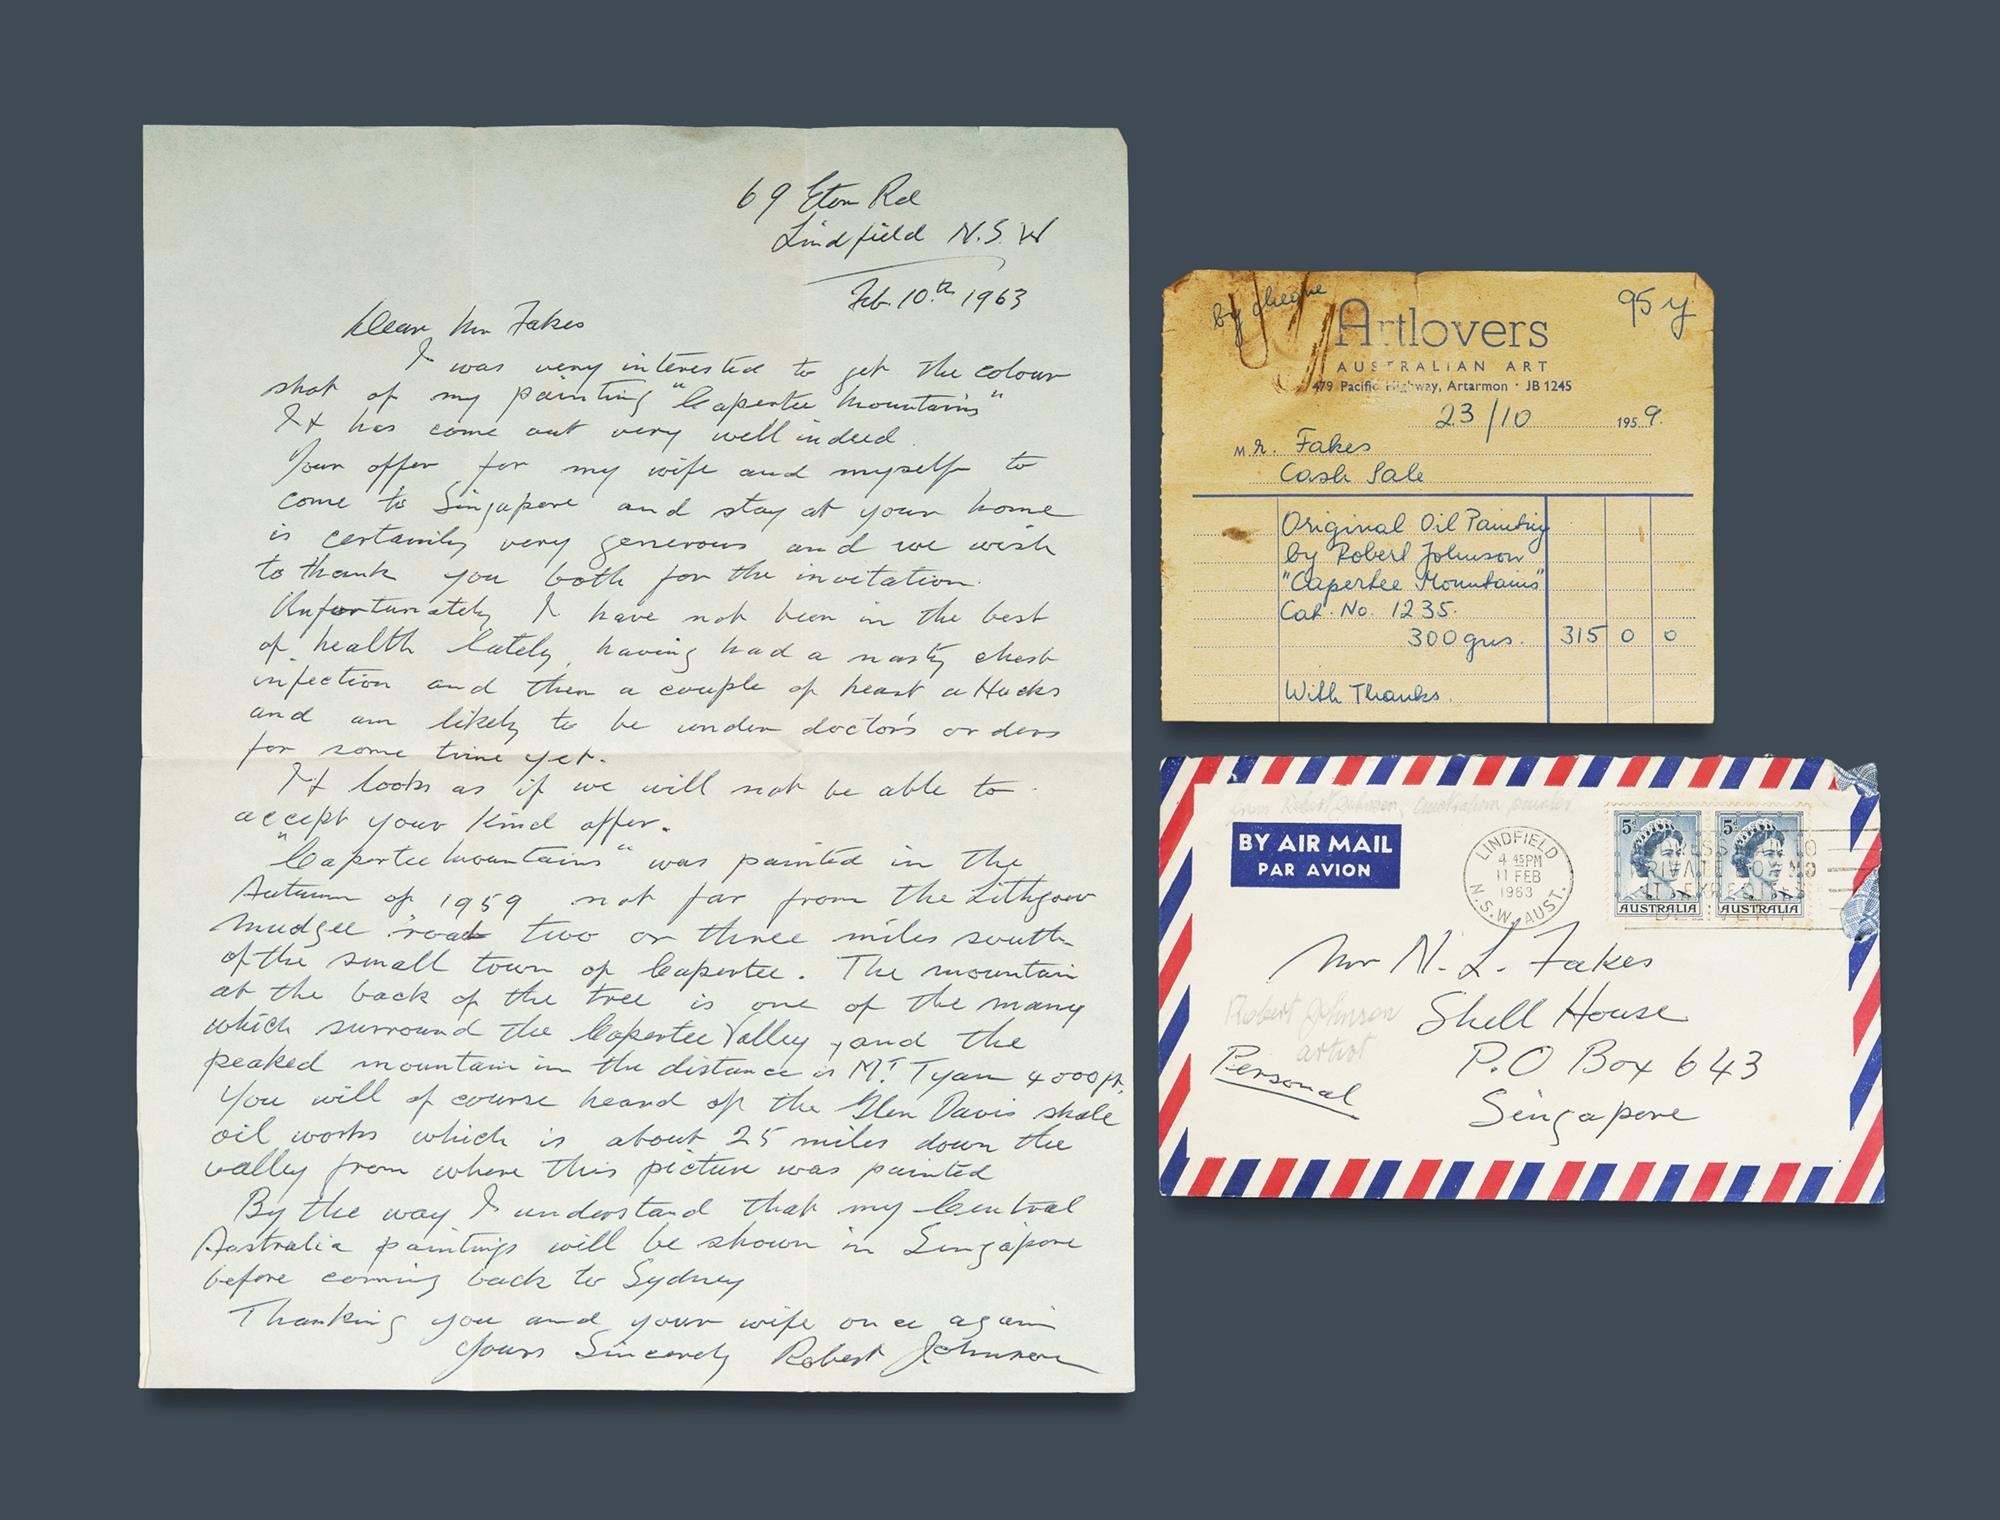 69 Eton Rd
Lindfield N.S.W
Feb. 10th 1963
Dear Mr Fakes
I was very interested to get the colour
shot of my painting "Capertee Mountains"
It has come out very well indeed.
Your offer for my wife and myself to
come to Singapore and stay at your home
is certainly very generous and we wish
to thank you both for the invitation.
Unfortunately I have not been in the best
of health lately, having had a nasty chest
infection and then a couple of heart attacks
and am likely to be under doctor's orders
for some time yet.
It looks as if we will not be able to
accept your kind offer.
"Capertee Mountains" was painted in the
Autumn of 1959 not far from the Lithgow
Mudgee road two or three miles south
of the small town of Capertee. The mountain
at the back of the tree is one of the many
which surround the Capertee Valley, and the
peaked mountain in the distance is Mt Tyan 4000ft.
You will of course heard of the Glen Davis shale
oil works which is about 25 miles down the
valley from where this picture was painted
By the way I understand that my Central
Australia paintings will be shown in Singapore
before coming back to Sydney
Thanking you and your wife once again
Yours Sincerely Robert Johnson
by cheque
95 y
Artlovers
AUSTRALIAN ART
479 Pacific Highway, Artarmon · JB 1245
23/10 1959.
Mr. Fakes
Cash Sale
Original Oil Painting
by Robert Johnson
"Capertee Mountains"
Cat. No. 1235.
300 gns. 315 0 0
With Thanks.
from Robert Johnson, Australian painter
BY AIR MAIL
PAR AVION
LINDFIELD
4 45PM
11 FEB
1963
N.S.W. AUST.
5d 5d
AUSTRALIA AUSTRALIA
Mr N. L. Fakes
Shell House
P.O Box 643
Singapore
Robert Johnson
artist
Personal